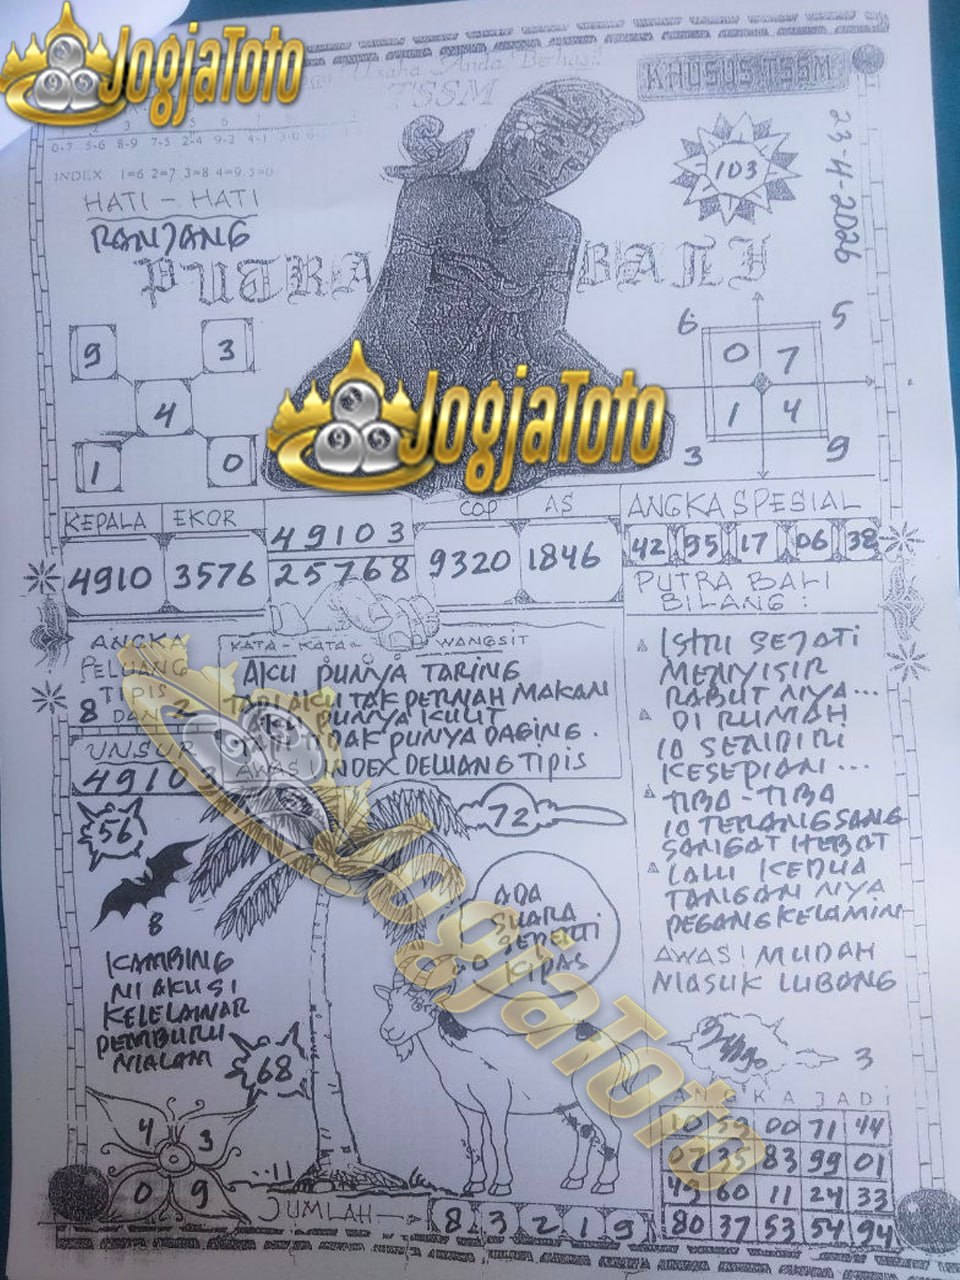 JogjaToto
Usaha Anda Berhasil
TSSM
KHUSUS TSSM
23-4-2026
0-7 5-6 8-9 7-5 2-4 9-2 4-1
INDEX 1=6 2=7 3=8 4=9 5=0
103
HATI - HATI
RANJANG
PUTRA BALI
9 3
4
1 0
6 5
0 7
1 4
3 9
JogjaToto
KEPALA EKOR
4910 3576
49103
25768
COP AS
9320 1846
ANGKA SPESIAL
42 95 17 06 38
PUTRA BALI
BILANG :
ANGKA
PELUANG
TIPIS
8 DAN 2
UNSUR
49103
KATA - KATA WANGSIT
AKU PUNYA TARING
TAPI AKU TAK PERNAH MAKAN
AKU PUNYA KULIT
TAPI TIDAK PUNYA DAGING.
AWAS INDEX DEWANG TIPIS
ISTRI SEJATI
MENYISIR
RABUT NYA...
DI RUMAH
IA SENDIRI
KESEPIAN...
TIBA-TIBA
IA TERANGSANG
SANGAT HEBAT
LALU KEDUA
TANGAN NYA
PEGANG KELAMIN
AWAS! MUDAH
MASUK LUBANG
56
72
8
ADA
SUARA
SEPERTI
KIPAS
KAMBING
NI AKU SI
KELELAWAR
PEMBURU
MALAM
68
JogjaToto
3
4 3
0 9
11
JUMLAH
8 3 2 1 9
ANGKA JADI
10 59 00 71 44
07 35 83 99 01
49 60 11 24 33
80 37 53 54 94